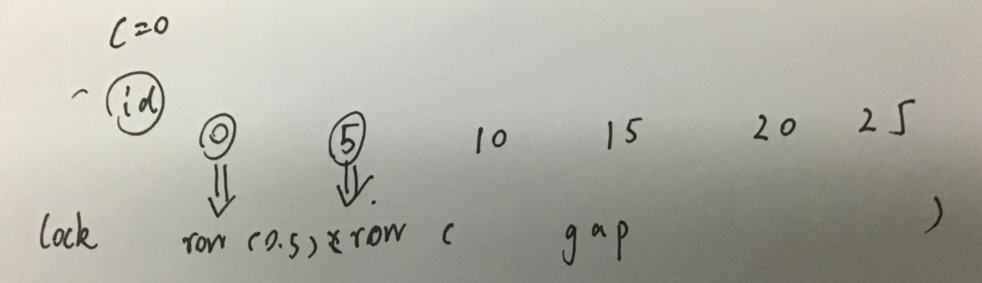 C=0
id
0 5 10 15 20 25
lock row (0.5) row ( gap )